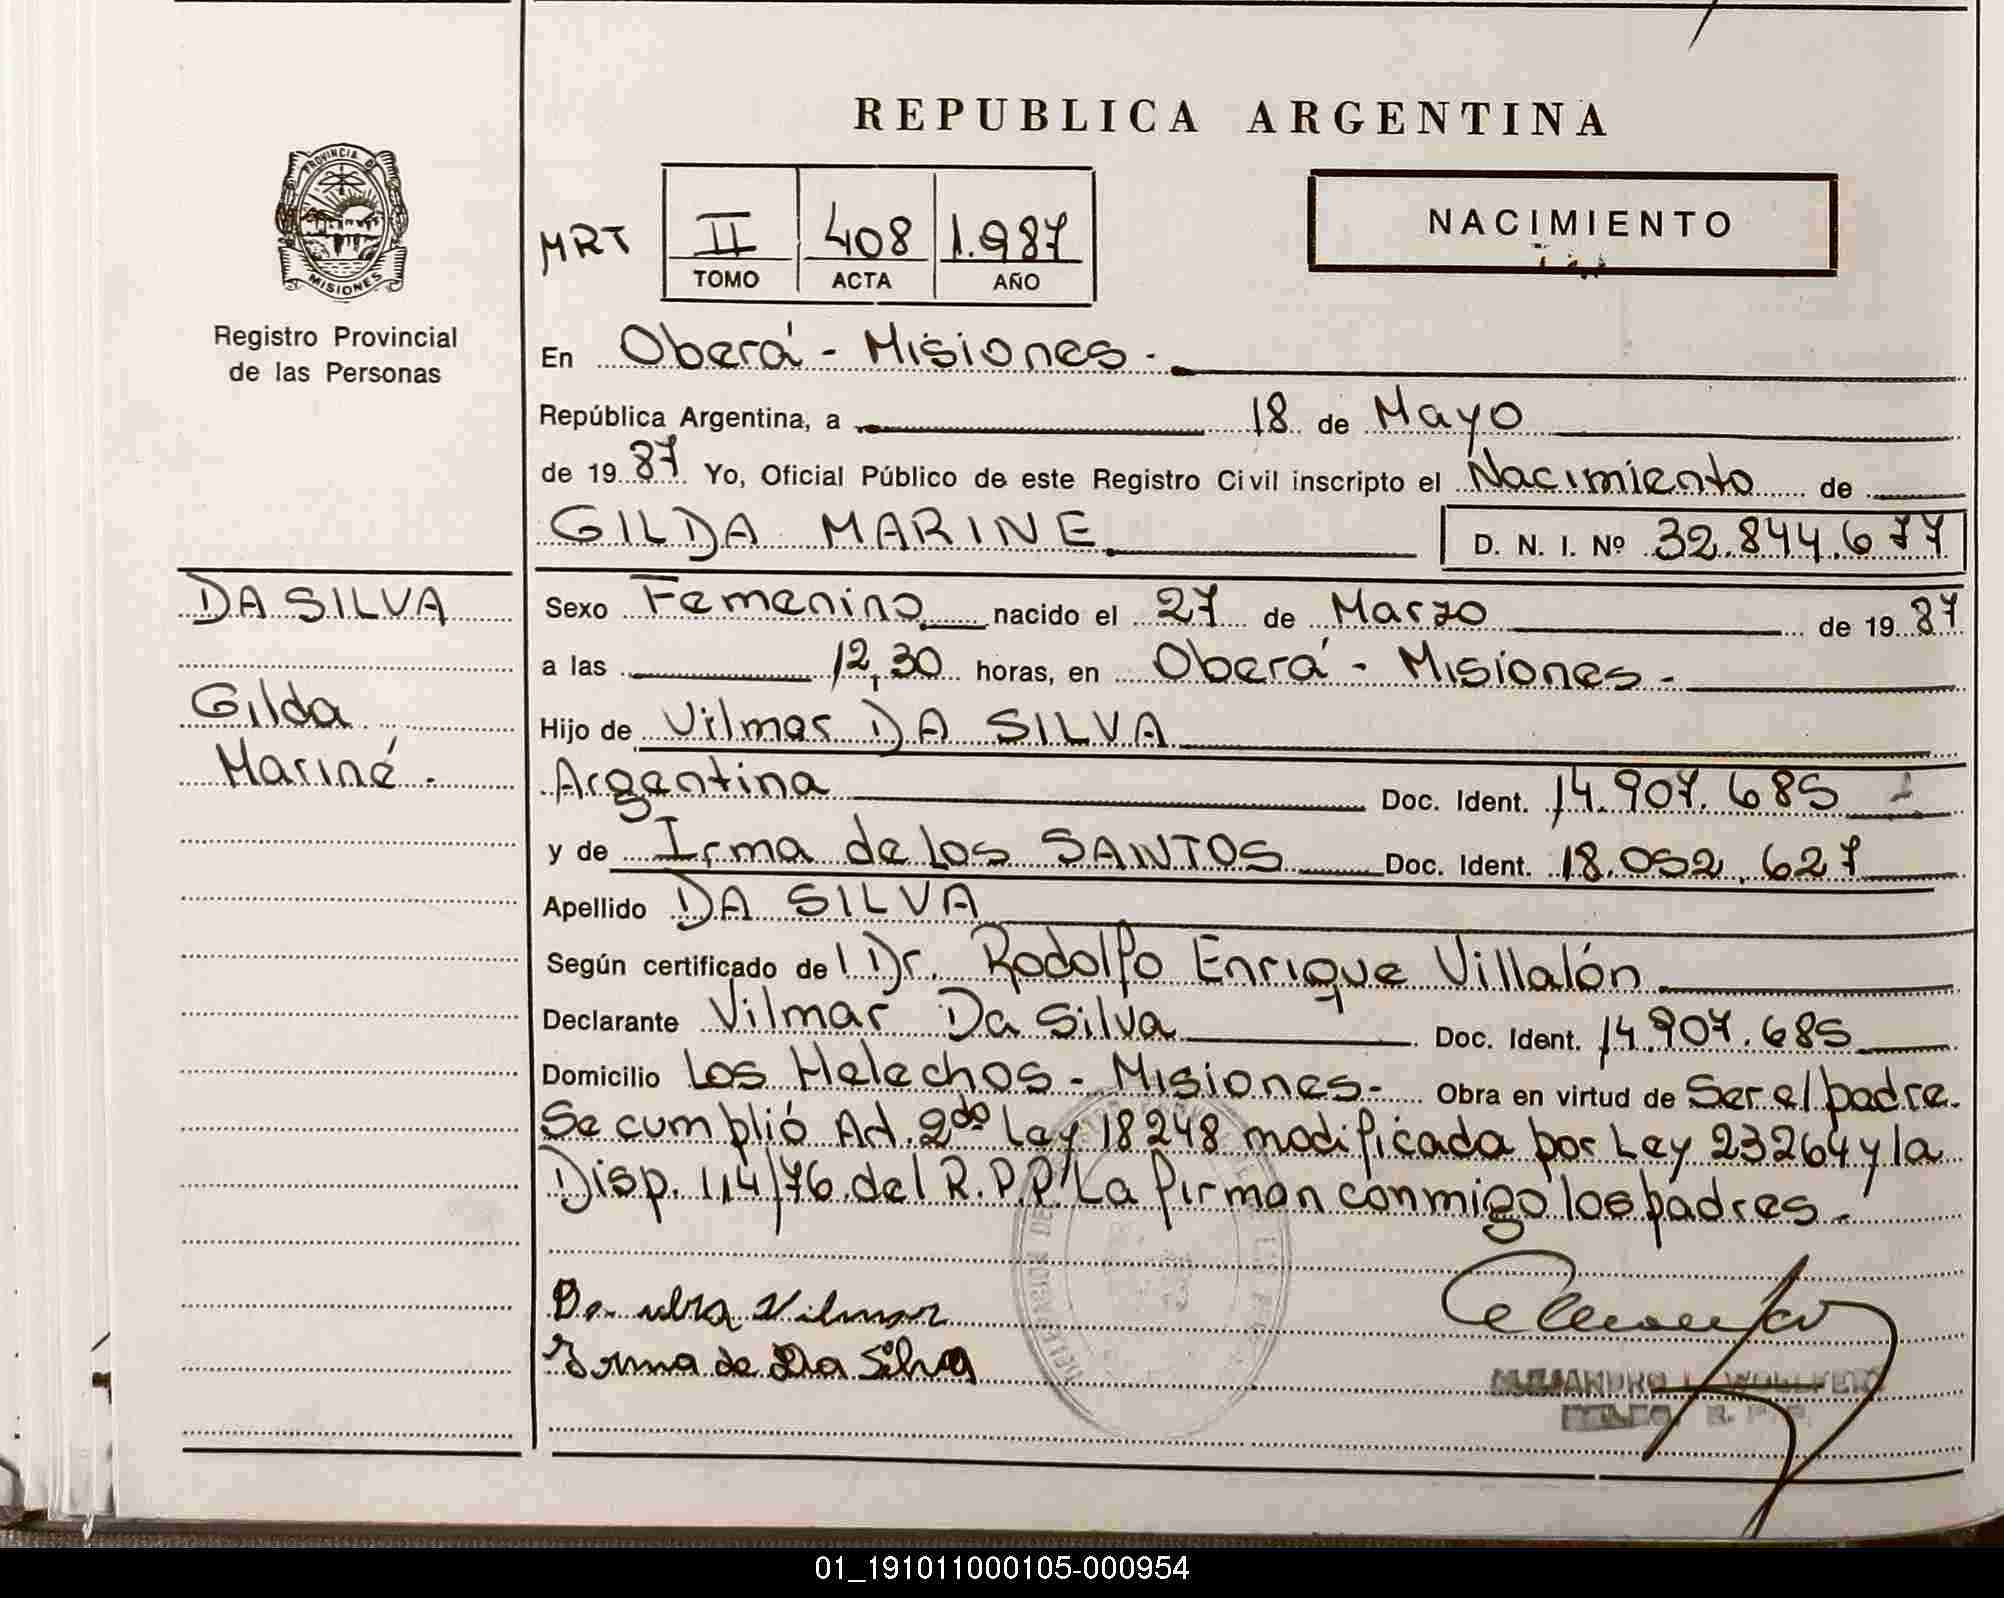 REPUBLICA ARGENTINA
PROVINCIA DE
MISIONES
Registro Provincial
de las Personas
MRT
II
TOMO
408
ACTA
1.987
AÑO
NACIMIENTO
En Oberá - Misiones -
República Argentina, a 18 de Mayo
de 19 87 Yo, Oficial Público de este Registro Civil inscripto el Nacimiento de
GILDA MARINE D. N. I. Nº 32.844.677
DA SILVA
Gilda
Mariné.
Sexo Femenino nacido el 27 de Marzo de 19 87
a las 12,30 horas, en Oberá - Misiones -
Hijo de Vilmar DA SILVA
Argentina Doc. Ident. 14.907.685
y de Irma de los SANTOS Doc. Ident. 18.052.627
Apellido DA SILVA
Según certificado de l Dr. Rodolfo Enrique Villalón
Declarante Vilmar Da Silva Doc. Ident. 14.907.685
Domicilio Los Helechos - Misiones - Obra en virtud de Ser el padre.
Se cumplió Ad. 2do Ley 18248 modificada por Ley 23264 y la
Disp. 114/76 del R.P.P. La firman conmigo los padres.
Vilmar
Irma de Da Silva
ALEJANDRO
R. P. P.
01_191011000105-000954